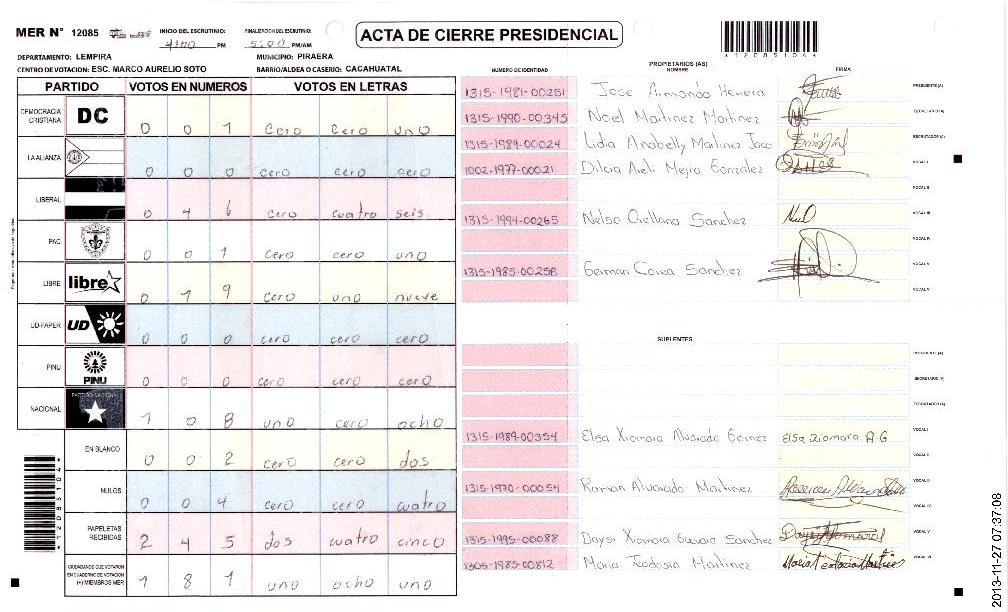 MER N° 12085 INICIO DEL ESCRUTINIO: 4:00 PM FINALIZACION DEL ESCRUTINIO: 5:00 PM/AM
ACTA DE CIERRE PRESIDENCIAL
*12085104*
DEPARTAMENTO: LEMPIRA MUNICIPIO: PIRAERA
CENTRO DE VOTACION: ESC. MARCO AURELIO SOTO BARRIO/ALDEA O CASERIO: CACAHUATAL
PARTIDO VOTOS EN NUMEROS VOTOS EN LETRAS
DEMOCRACIA CRISTIANA DC 0 0 1 cero cero uno
LA ALIANZA 0 0 0 cero cero cero
LIBERAL 0 4 6 cero cuatro seis
PAC 0 0 1 cero cero uno
LIBRE libre 0 1 9 cero uno nueve
UD-FAPER UD 0 0 0 cero cero cero
PINU PINU 0 0 0 cero cero cero
NACIONAL PARTIDO NACIONAL 1 0 8 uno cero ocho
EN BLANCO 0 0 2 cero cero dos
NULOS 0 0 4 cero cero cuatro
PAPELETAS RECIBIDAS 2 4 5 dos cuatro cinco
CIUDADANOS QUE VOTARON EN CUADERNO DE VOTACION (+) MIEMBROS MER 1 8 1 uno ocho uno
*12085104*
PROPIETARIOS (AS)
NUMERO DE IDENTIDAD NOMBRE FIRMA
1315-1981-00251 Jose Armondo Herrera PRESIDENTE (A)
1315-1990-00345 Noel Martinez Martinez SECRETARIO (A)
1315-1989-00024 Lidia Anabelly Martinez ESCRUTADOR (A)
1002-1977-00021 Dilcia Areli Mejia Gonzalez VOCAL I
VOCAL II
1315-1994-00265 Nelso Orellana Sanchez VOCAL III
VOCAL IV
1315-1985-00258 German Sanchez VOCAL V
VOCAL VI
SUPLENTES
PRESIDENTE (A)
SECRETARIO (A)
ESCRUTADOR (A)
1315-1989-00354 Elsa Xiomara Alvarado Gomez Elsa Xiomara A.G VOCAL I
VOCAL II
1315-1970-00054 Roman Alvarado Martinez VOCAL III
VOCAL IV
1315-1995-00088 Daysi Xiomara Sanchez VOCAL V
1305-1985-00812 Maria Teodosia Martinez Maria Teodocia Martinez VOCAL VI
2013-11-27 07:37:08